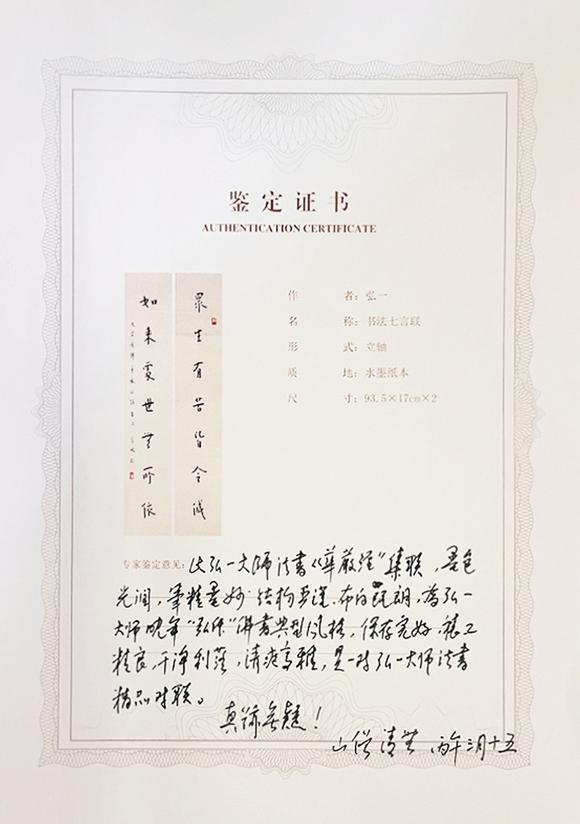 鉴定证书
AUTHENTICATION CERTIFICATE
眾生有苦皆令滅
如來處世無所依
作者：弘一
名称：书法七言联
形式：立轴
质地：水墨纸本
尺寸：93.5×17cm×2
专家鉴定意见：此弘一大师法書《華嚴經》集联，墨色
光润，筆精墨妙，结构，布白疏朗，為弘一
大师晚年“弘体”佛書典型风格，保存完好，裱工
精良，干净利落，清高雅，是一对弘一大师法書
精品对联。
真跡無疑！
山僧清 丙午三月十五